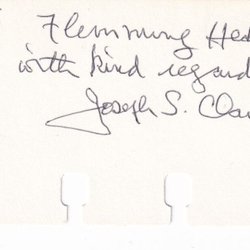 Flemming Hed
with kind regard
Joseph S. Cla